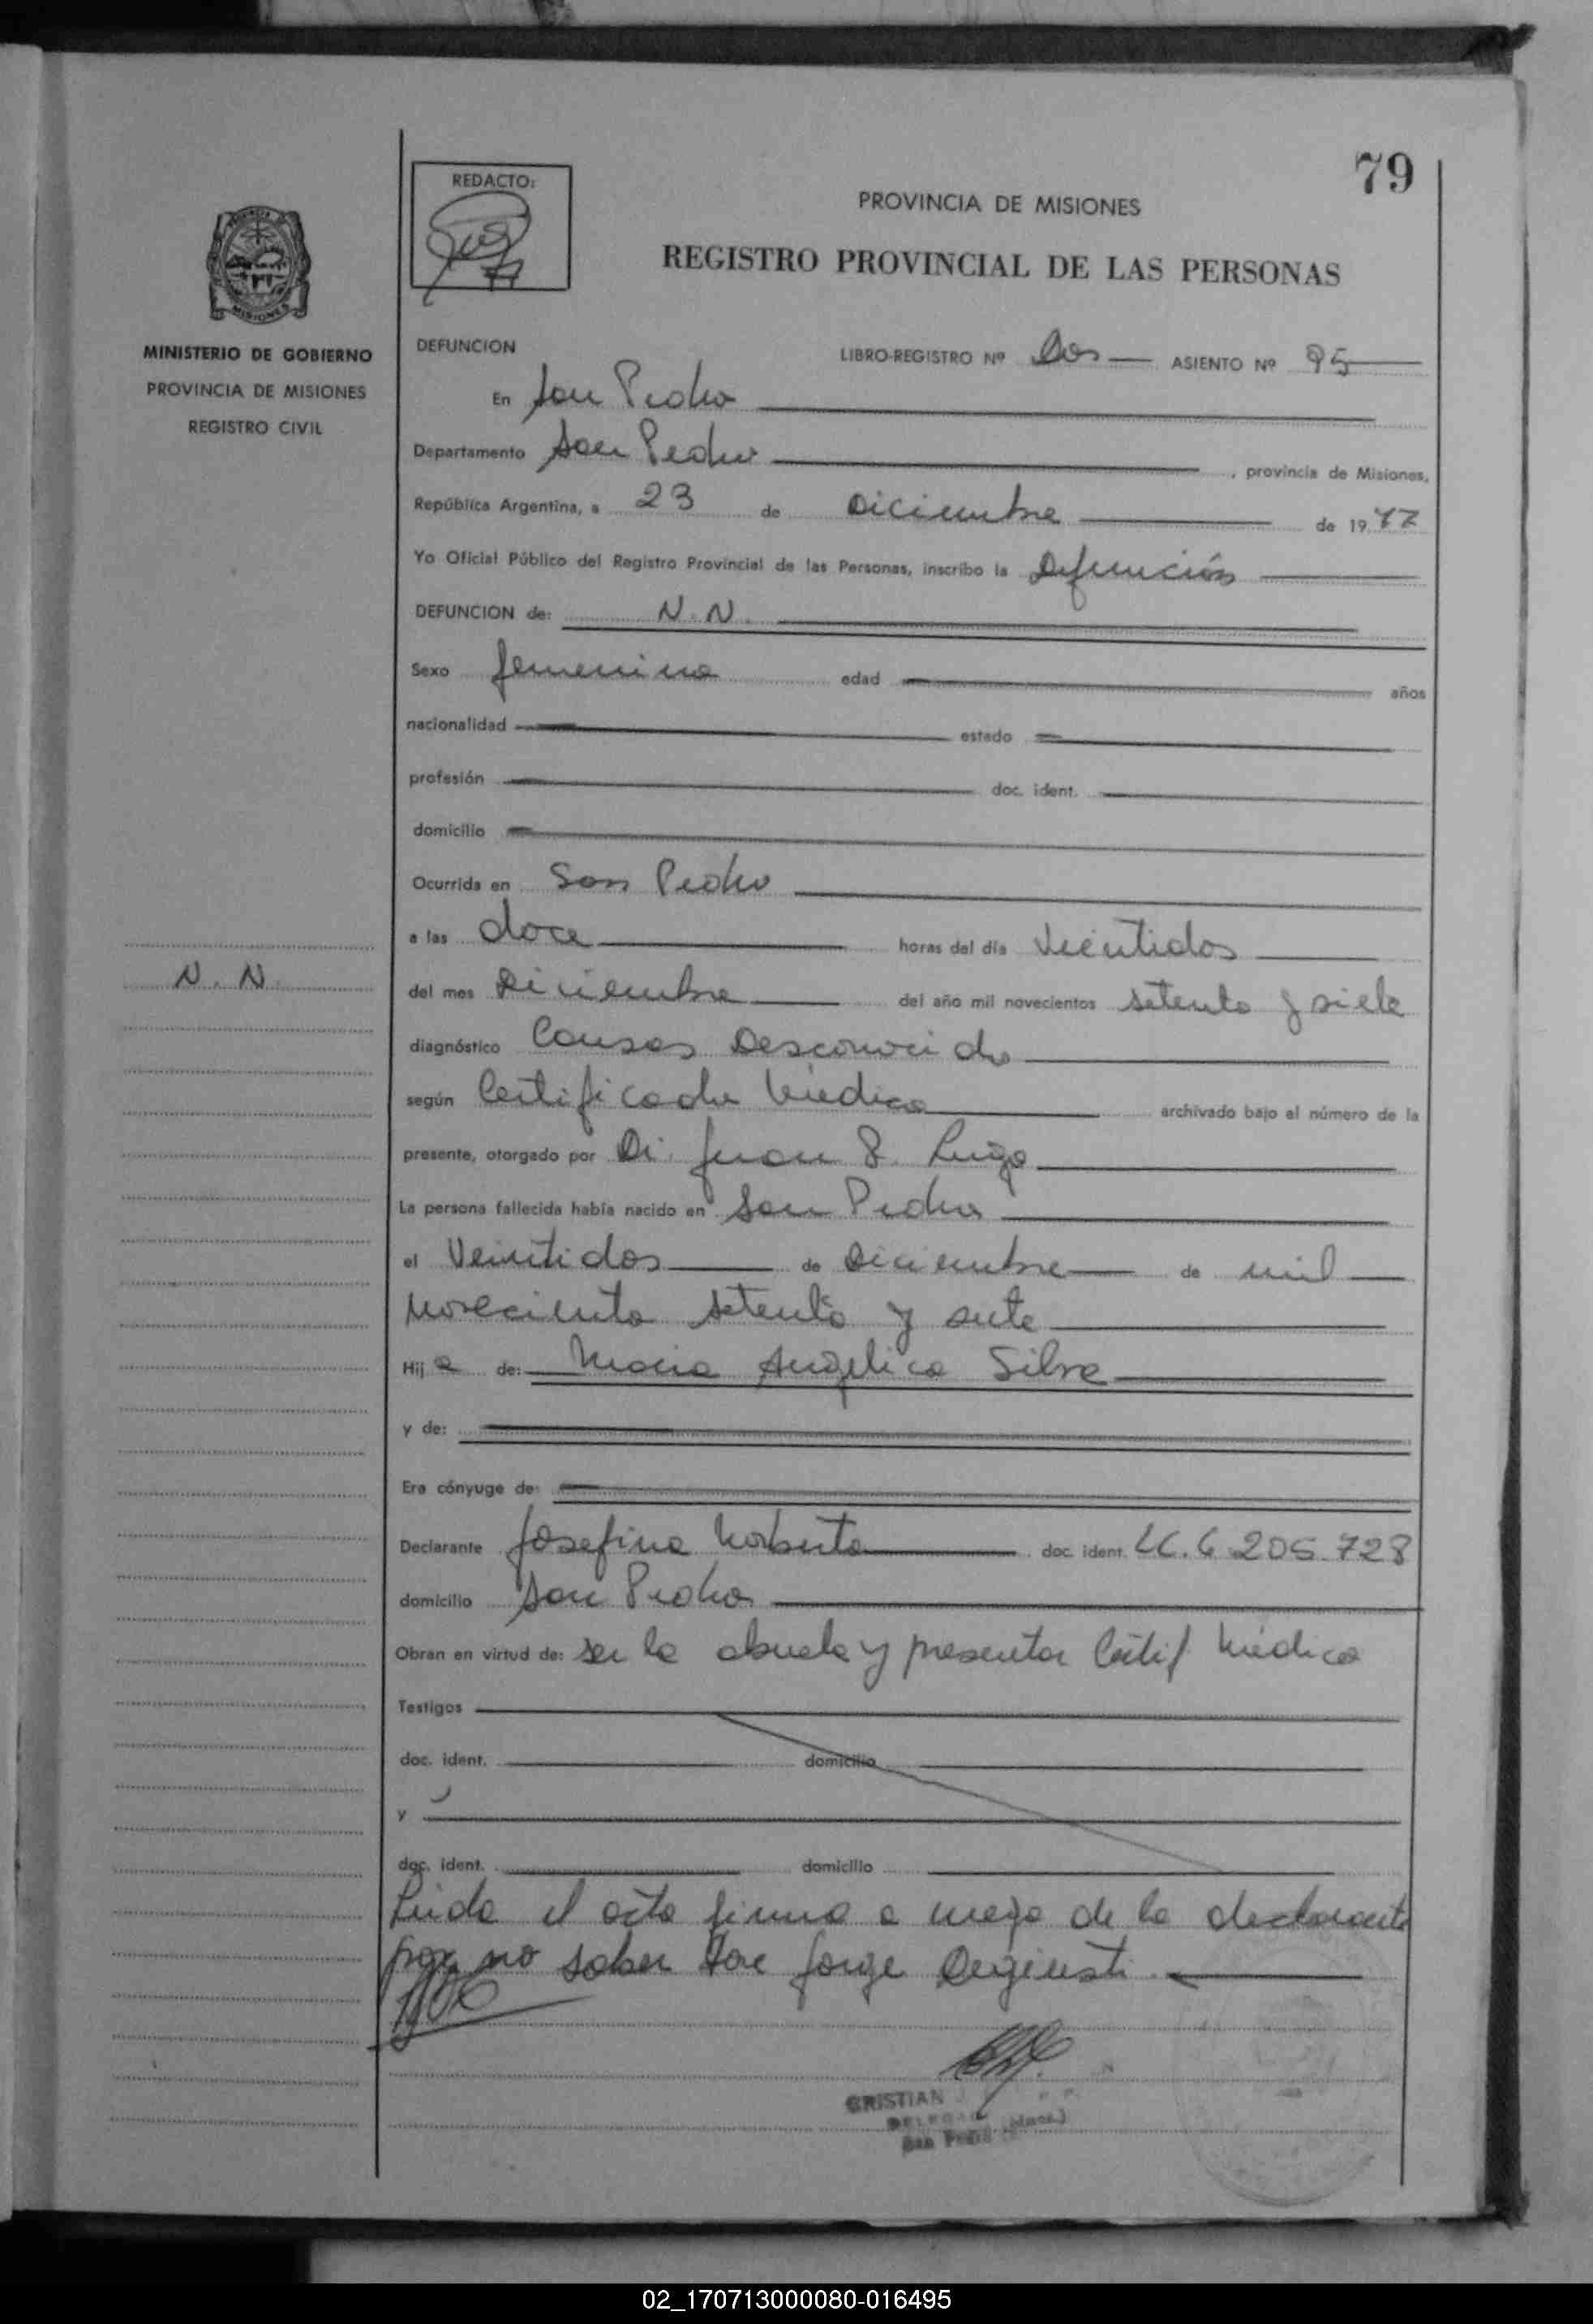 79
REDACTO:
PROVINCIA DE MISIONES
REGISTRO PROVINCIAL DE LAS PERSONAS
MINISTERIO DE GOBIERNO
PROVINCIA DE MISIONES
REGISTRO CIVIL
DEFUNCION
LIBRO-REGISTRO Nº Dos ASIENTO Nº 95
En San Pedro
Departamento San Pedro, provincia de Misiones,
República Argentina, a 23 de Diciembre de 19 77
Yo Oficial Público del Registro Provincial de las Personas, inscribo la Defunción
DEFUNCION de: N. N.
Sexo femenino edad años
nacionalidad estado
profesión doc. ident.
domicilio
Ocurrida en San Pedro
a las doce horas del día Veintidos
N. N.
del mes Diciembre del año mil novecientos setenta y siete
diagnóstico Causas Desconocida
según Certificado Médico archivado bajo el número de la
presente, otorgado por Dr. Juan Lugo
La persona fallecida había nacido en San Pedro
el Veintidos de Diciembre de mil
novecientos setenta y siete
Hij a de: Maria Angelica Silva
y de:
Era cónyuge de:
Declarante Josefina Norberta doc. ident. LC. 6.205.728
domicilio San Pedro
Obran en virtud de: ser la abuela y presentar Certif Médico
Testigos
doc. ident. domicilio
y
doc. ident. domicilio
Leida el acta firma a ruego de la declarante
por no saber Jorge
CRISTIAN
San Pedro (Mnes.)
02_170713000080-016495